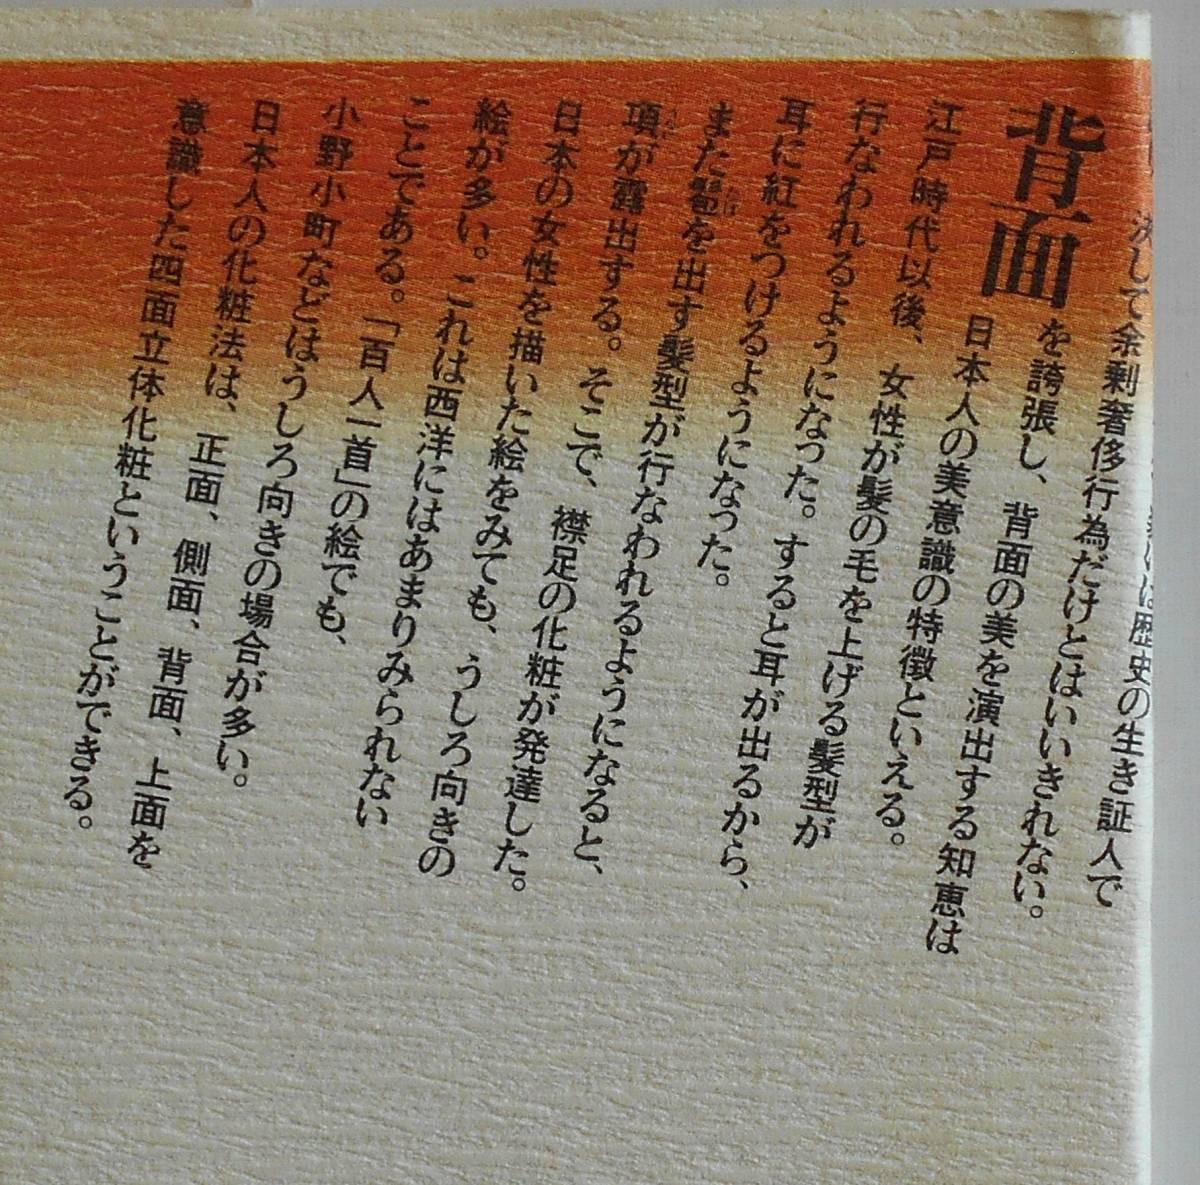 には歴史の生き証人で
決して余剰奢侈行為だけとはいいきれない。
背面を誇張し、背面の美を演出する知恵は
日本人の美意識の特徴といえる。
江戸時代以後、女性が髪の毛を上げる髪型が
行なわれるようになった。すると耳が出るから、
耳に紅をつけるようになった。
また髱を出す髪型が行なわれるようになると、
項が露出する。そこで、襟足の化粧が発達した。
日本の女性を描いた絵をみても、うしろ向きの
絵が多い。これは西洋にはあまりみられない
ことである。「百人一首」の絵でも、
小野小町などはうしろ向きの場合が多い。
日本人の化粧法は、正面、側面、背面、上面を
意識した四面立体化粧ということができる。